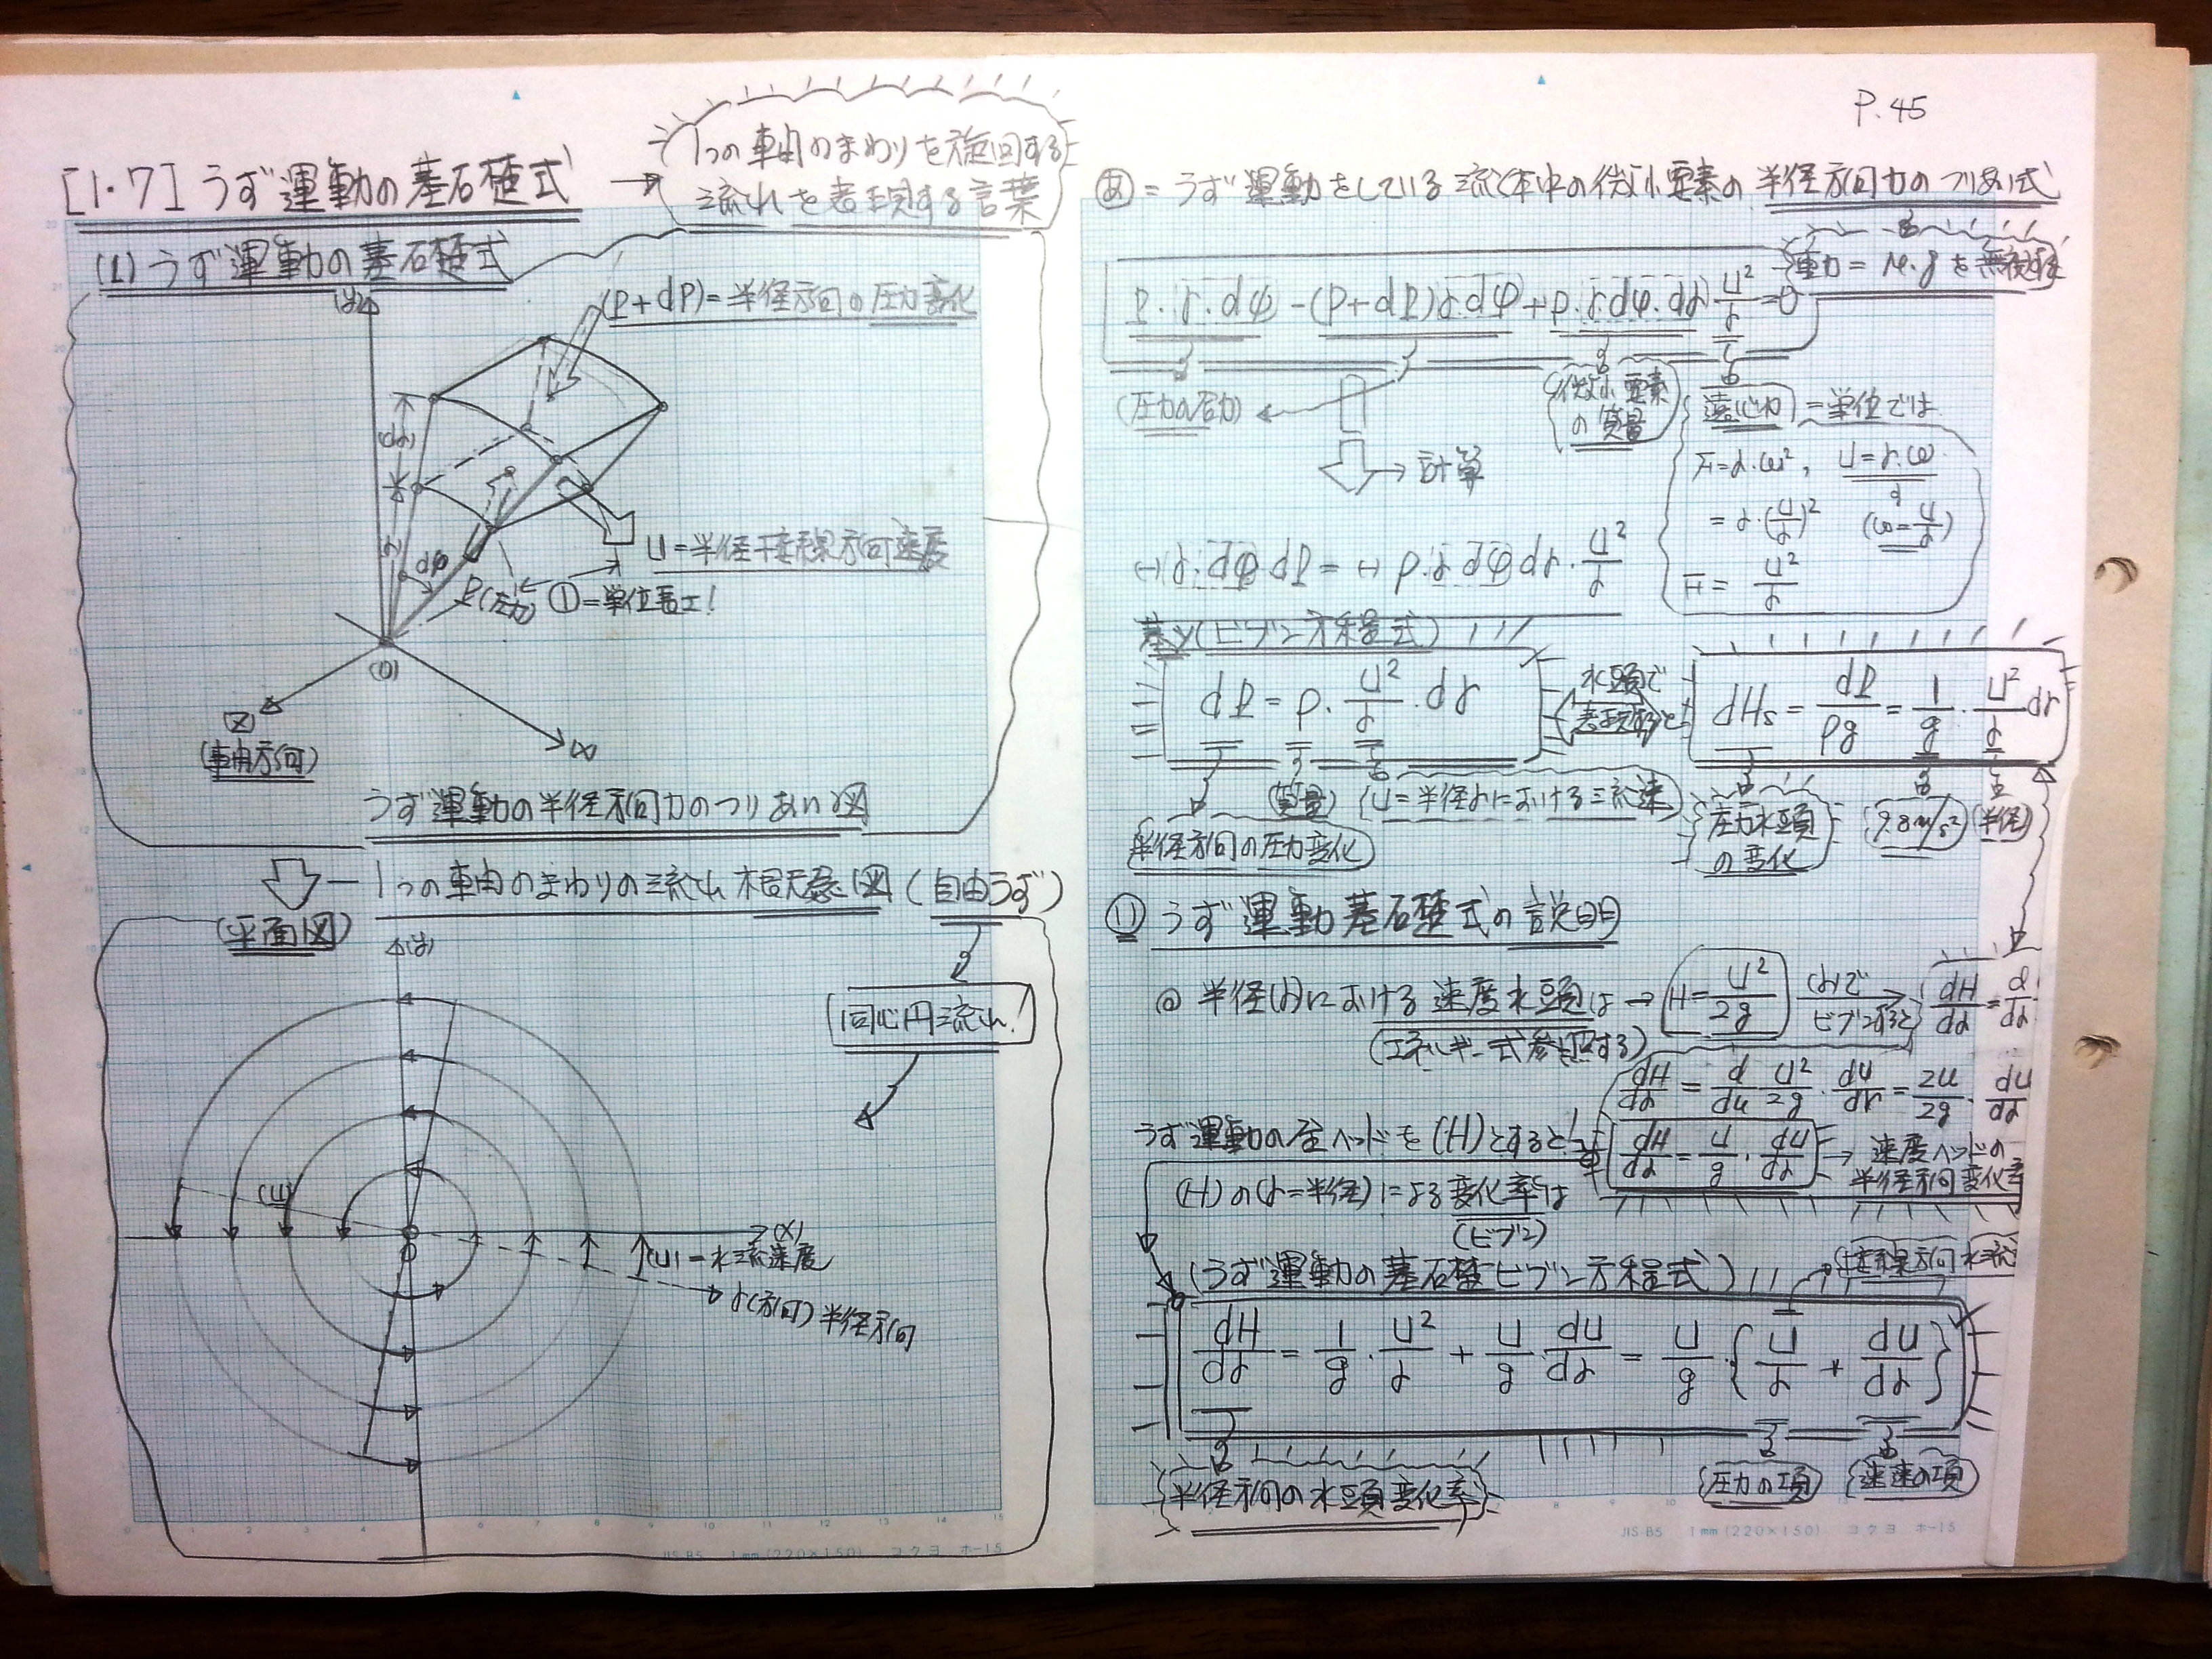 [1・7] うず運動の基礎式
1つの軸のまわりを旋回する
流れを表現する言葉
(1) うず運動の基礎式
(y)
(P+dP)=半径方向の圧力変化
(dr)
r
dφ
U=半径十接線方向速度
P(圧力) ①=単位長さ!
(0)
Z
(軸方向)
(x)
うず運動の半径方向力のつりあい図
1つの軸のまわりの流れ状態図(自由うず)
(平面図)
(y)
同心円流れ!
(U)
(x)
(U)=水流速度
r(方向)半径方向
JIS-B5 1mm(220×150) コクヨ ホ-15
P.45
あ=うず運動をしている流体中の微小要素の半径方向力のつりあい式
重力=M.gを無視する
P・r・dφ-(P+dP)r・dφ+ρ・r・dφ・dr U²/r=0
(圧力の合力)
微小要素
の質量
遠心力=単位では
計算
F=r・ω², U=r・ω
=r・(U/r)² (ω=U/r)
F=U²/r
(-)r・dφ・dP=(-)ρ・r・dφ dr・U²/r
基(ビブン方程式)
dP=ρ・U²/r・dr
水頭で
表現すると
dHs=dP/ρg=1/g・U²/r dr
(質量)
(U=半径rにおける流速)
半径方向の圧力変化
圧力水頭
の変化
(9.8m/s²)
(半径)
(1) うず運動基礎式の説明
◎ 半径(r)における速度水頭は→ H=U²/2g
(r)で
ビブンすると
dH/dr=d/dr
(エネルギー式参照する)
dH/dr=d/du U²/2g・du/dr=2u/2g・du/dr
うず運動の全ヘッドを(H)とすると!
dH/dr=U/g・dU/dr → 速度ヘッドの
半径方向変化率
(H)の(r=半径)による変化率は
(ビブン)
(うず運動の基礎ビブン方程式)
接線方向水流
dH/dr=1/g・U²/r+U/g・dU/dr=U/g・{U/r+dU/dr}
半径方向の水頭変化率
圧力の項
速速の項
JIS-B5 1mm(220×150) コクヨ ホ-15